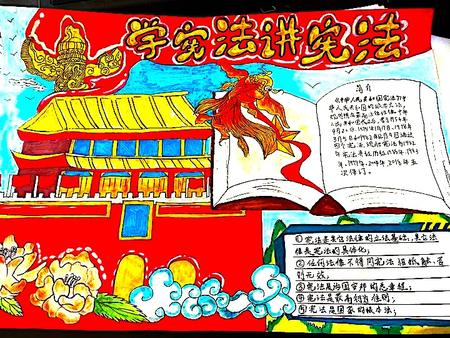 学宪法讲宪法
简介
《中华人民共和国宪法》是中
华人民共和国的根本大法,
拥有最高法律效力。中华
人民共和国成立后,曾于1954年
9月20日、1975年1月17日、1978年
3月5日和1982年12月4日通过
四个宪法,现行宪法为1982
年宪法,并历经1988年、1993
年、1999年、2004年、2018年五
次修订。
①宪法是其它法律的立法基础,其它法
律是宪法的具体化;
②任何法律不得同宪法相抵触,否
则无效;
③宪法是治国安邦的总章程;
④宪法是最高行为准则;
⑤宪法是国家的根本法;